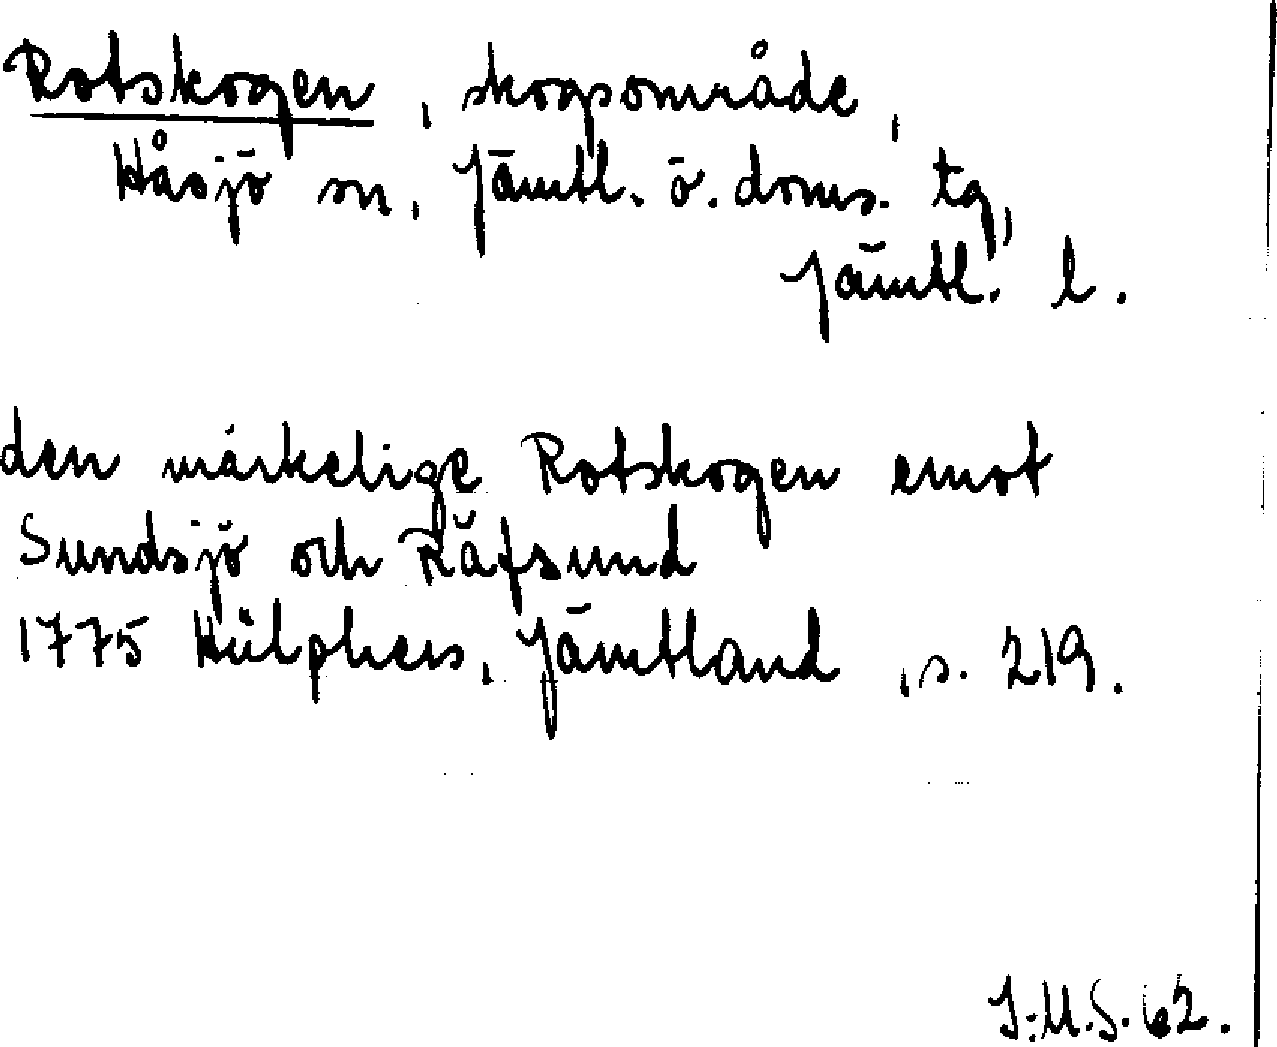 Rotskogen, skogsområde,
Håsjö sn, Jämtl. ö. doms. tg,
Jämtl. l.
den märkelige Rotskogen emot
Sundsjö och Räfsund
1775 Hülphers, Jämtland, s. 219.
I:M.S. 62.